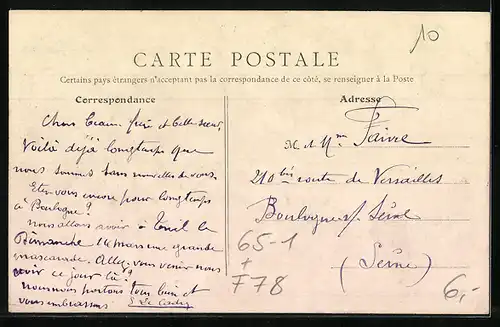 10
CARTE POSTALE
Certains pays étrangers n'acceptant pas la correspondance de ce côté, se renseigner à la Poste
Correspondance
Chers Beau frère et belle sœur,
Voilà déjà longtemps que
nous sommes sans nouvelles de vous.
Etes-vous encore pour longtemps
à Boulogne?
nous allons avoir à le
Dimanche 14 mars une grande
mascarade. Allez-vous venir nous
voir ce jour là?
nous nous portons tous bien et
vous embrassons.
Adresse
M. et Mme Faivre
210 bis route de Versailles
Boulogne s/ Seine
(Seine)
65-1
+
F78
6,-